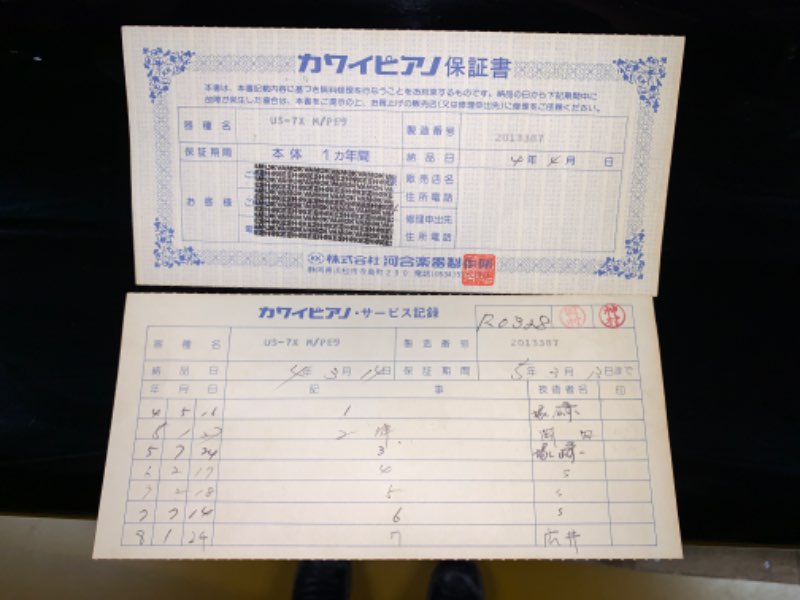 カワイピアノ 保証書
本書は、本書記載内容に基づき無料修理を行なうことをお約束するものです。納品の日から下記期間中に
故障が発生した場合は、本書をご提示の上、お買上げの販売店(又は修理申出先)に修理をご依頼ください。
器種名 US-7X M/PEタ 製造番号 2013387
保証期間 本体 1ヵ年間 納品日 4年4月 日
お客様 販売店名
住所電話
修理申出先
住所電話
株式会社 河合楽器製作所
カワイピアノ・サービス記録
R0328
器種名 US-7X M/PEタ 製造番号 2013387
納品日 4年3月14日 保証期間 5年3月13日まで
年月日 記事 技術者名 印
4 5 16 1
5 1 27 2
5 7 24 3
2 17 4 s
2 18 5 s
7 7 14 6 s
8 1 24 7 広井